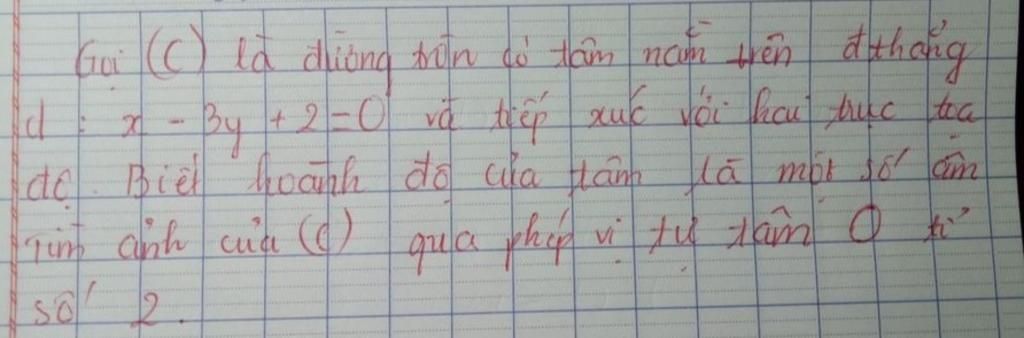 Gọi (C) là đường tròn có tâm nằm trên đthẳng
d : x - 3y + 2 = 0 và tiếp xúc với hai trục tọa
độ. Biết hoành độ của tâm là một số âm
Tìm ảnh của (C) qua phép vị tự tâm O tỉ
số 2.